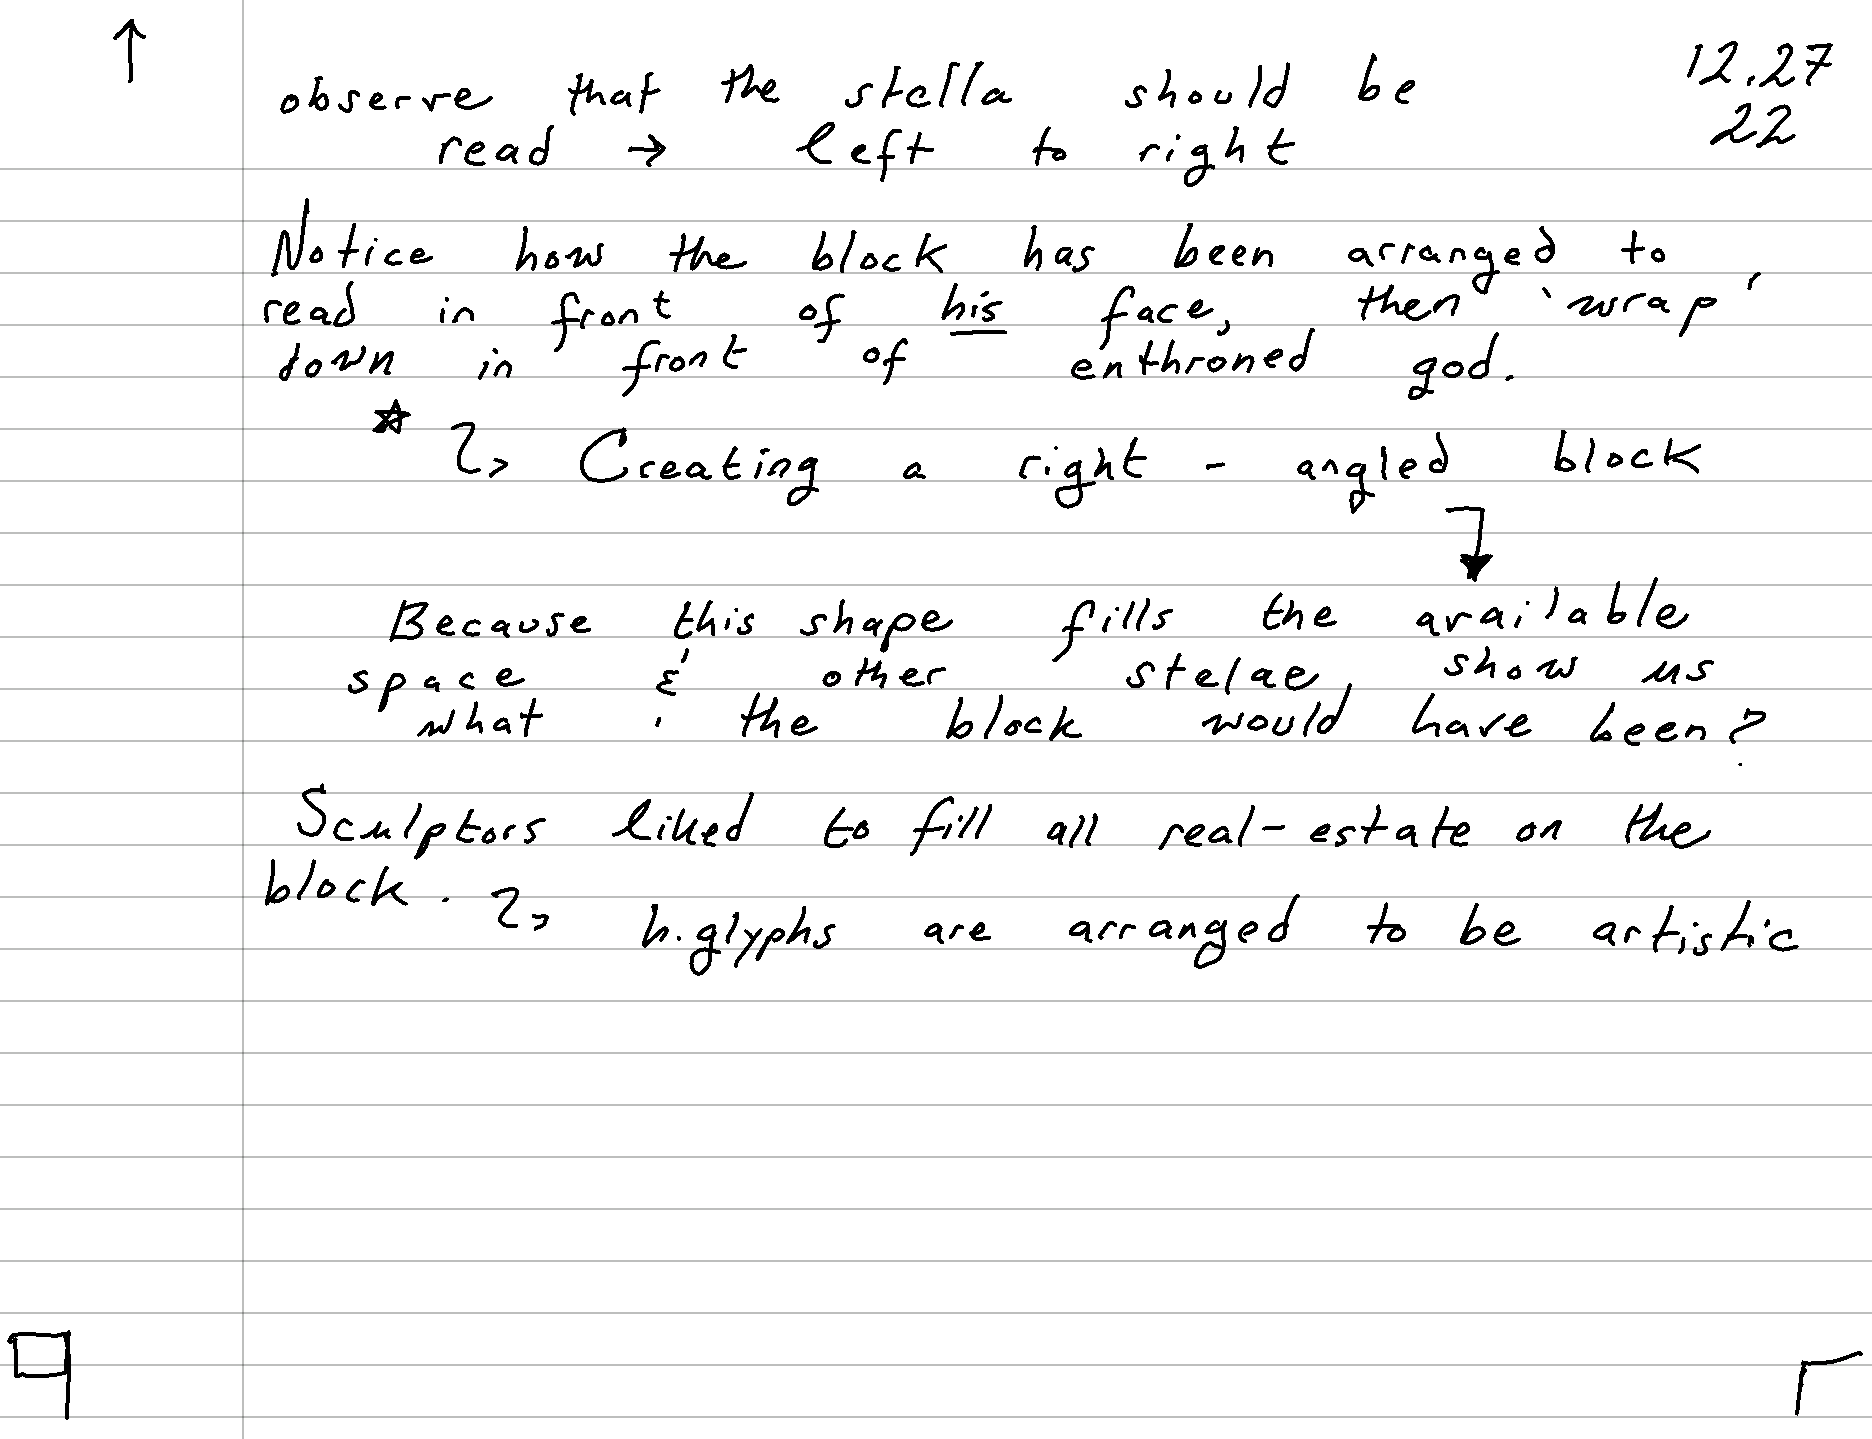 ↑
12.27
22
observe that the stella should be
read → left to right
Notice how the block has been arranged to
read in front of his face, then 'wrap'
down in front of enthroned god.
☆ ↳ Creating a right - angled block
Because this shape fills the available
space & other stelae show us
what the block would have been?
Sculptors liked to fill all real-estate on the
block. ↳ h.glyphs are arranged to be artistic